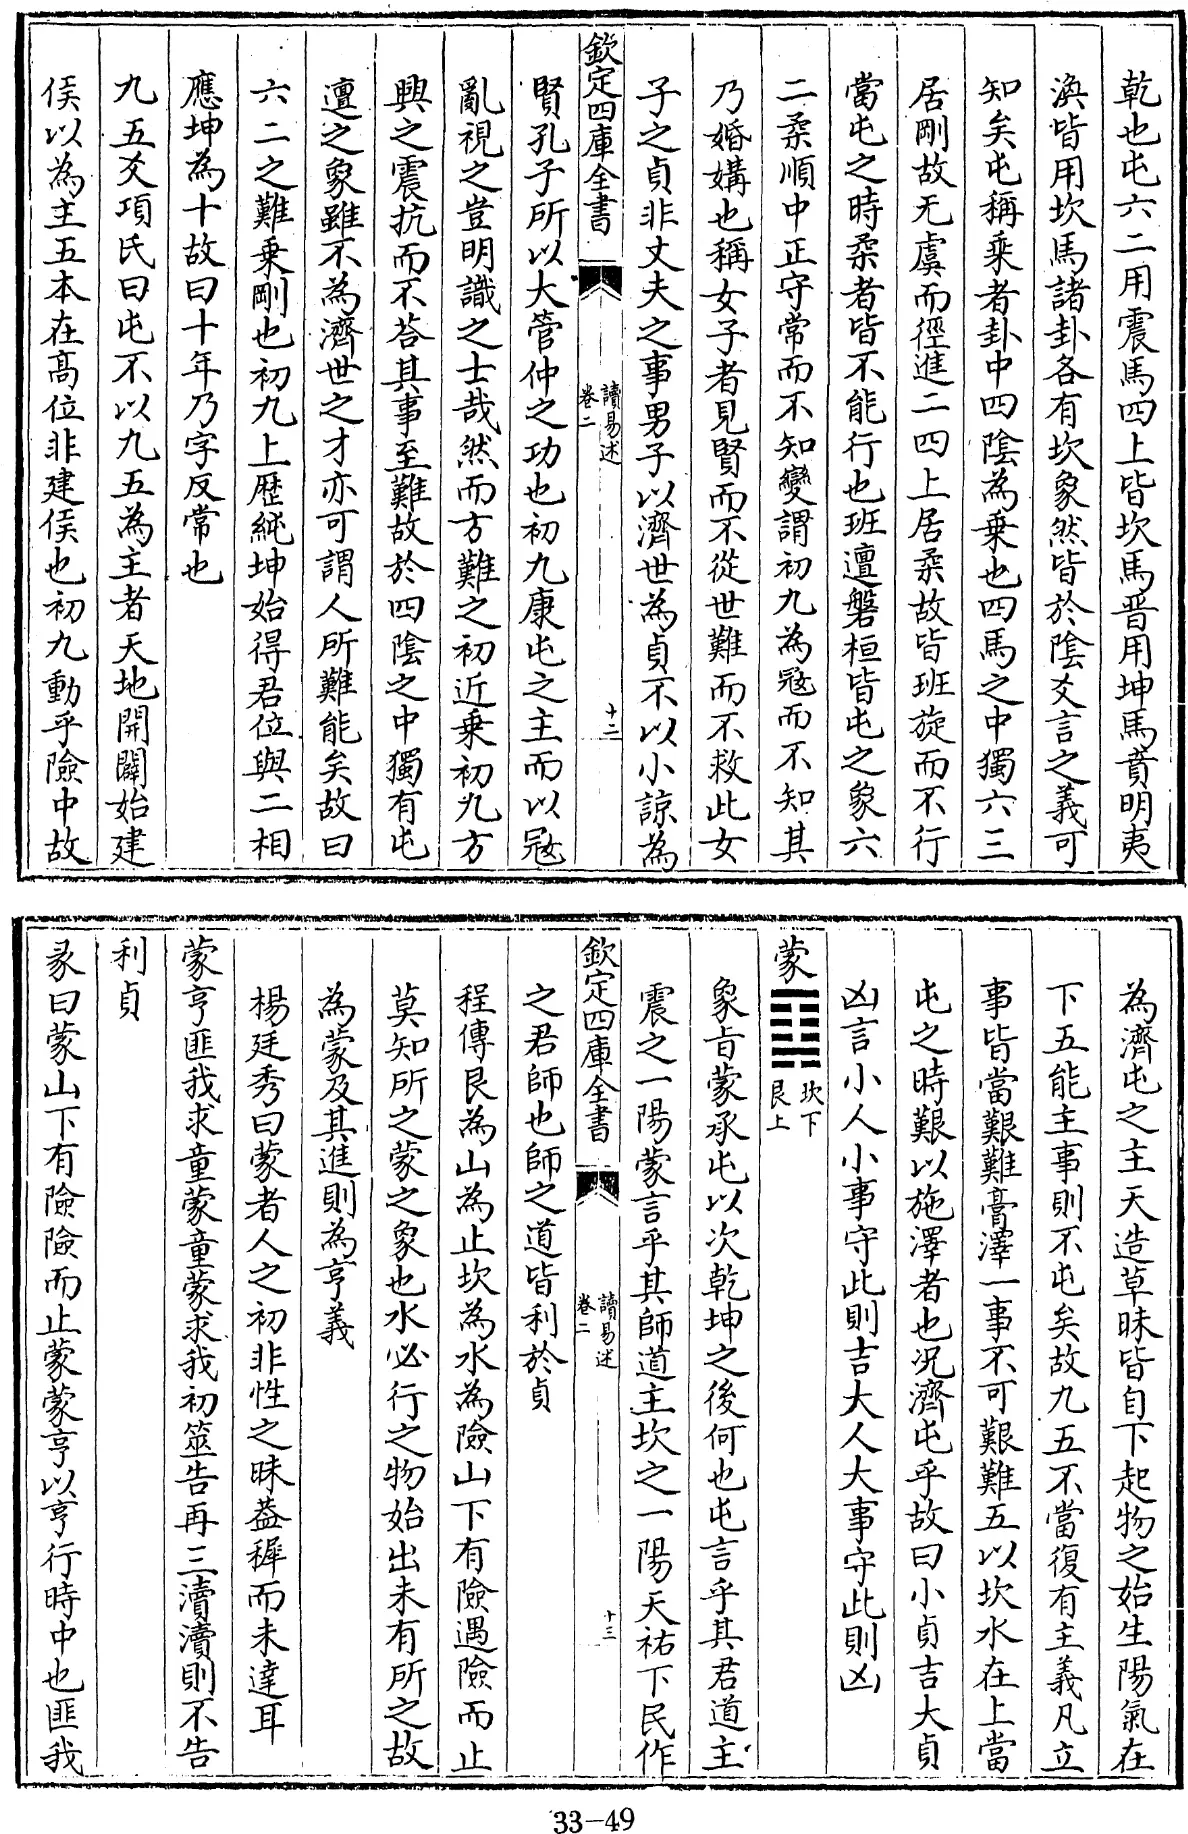 乾也屯六二用震馬四上皆坎馬晉用坤馬賁明夷
渙皆用坎馬諸卦各有坎象然皆於隂爻言之義可
知矣屯稱乘者卦中四隂為乗也四馬之中獨六三
居剛故无虞而徑進二四上居柔故皆班旋而不行
當屯之時柔者皆不能行也班邅磐桓皆屯之象六
二柔順中正守常而不知變謂初九為冦而不知其
乃婚媾也稱女子者見賢而不從世難而不救此女
子之貞非丈夫之事男子以濟世為貞不以小諒為
欽定四庫全書
讀易述
卷二
十二
賢孔子所以大管仲之功也初九康屯之主而以冦
亂視之豈明識之士哉然而方難之初近乗初九方
興之震抗而不荅其事至難故於四隂之中獨有屯
邅之象雖不為濟世之才亦可謂人所難能矣故曰
六二之難乗剛也初九上歴純坤始得君位與二相
應坤為十故曰十年乃字反常也
九五爻項氏曰屯不以九五為主者天地開闢始建
侯以為主五本在髙位非建侯也初九動乎險中故
為濟屯之主天造草昧皆自下起物之始生陽氣在
下五能主事則不屯矣故九五不當復有主義凡立
事皆當艱難膏澤一事不可艱難五以坎水在上當
屯之時艱以施澤者也况濟屯乎故曰小貞吉大貞
凶言小人小事守此則吉大人大事守此則凶
蒙
坎下
艮上
象旨蒙承屯以次乾坤之後何也屯言乎其君道主
震之一陽蒙言乎其師道主坎之一陽天祐下民作
欽定四庫全書
讀易述
卷二
十三
之君師也師之道皆利於貞
程傳艮為山為止坎為水為險山下有險遇險而止
莫知所之蒙之象也水必行之物始出未有所之故
為蒙及其進則為亨義
楊廷秀曰蒙者人之初非性之昧葢穉而未達耳
蒙亨匪我求童蒙童蒙求我初筮告再三瀆瀆則不告
利貞
彖曰蒙山下有險險而止蒙蒙亨以亨行時中也匪我
33-49